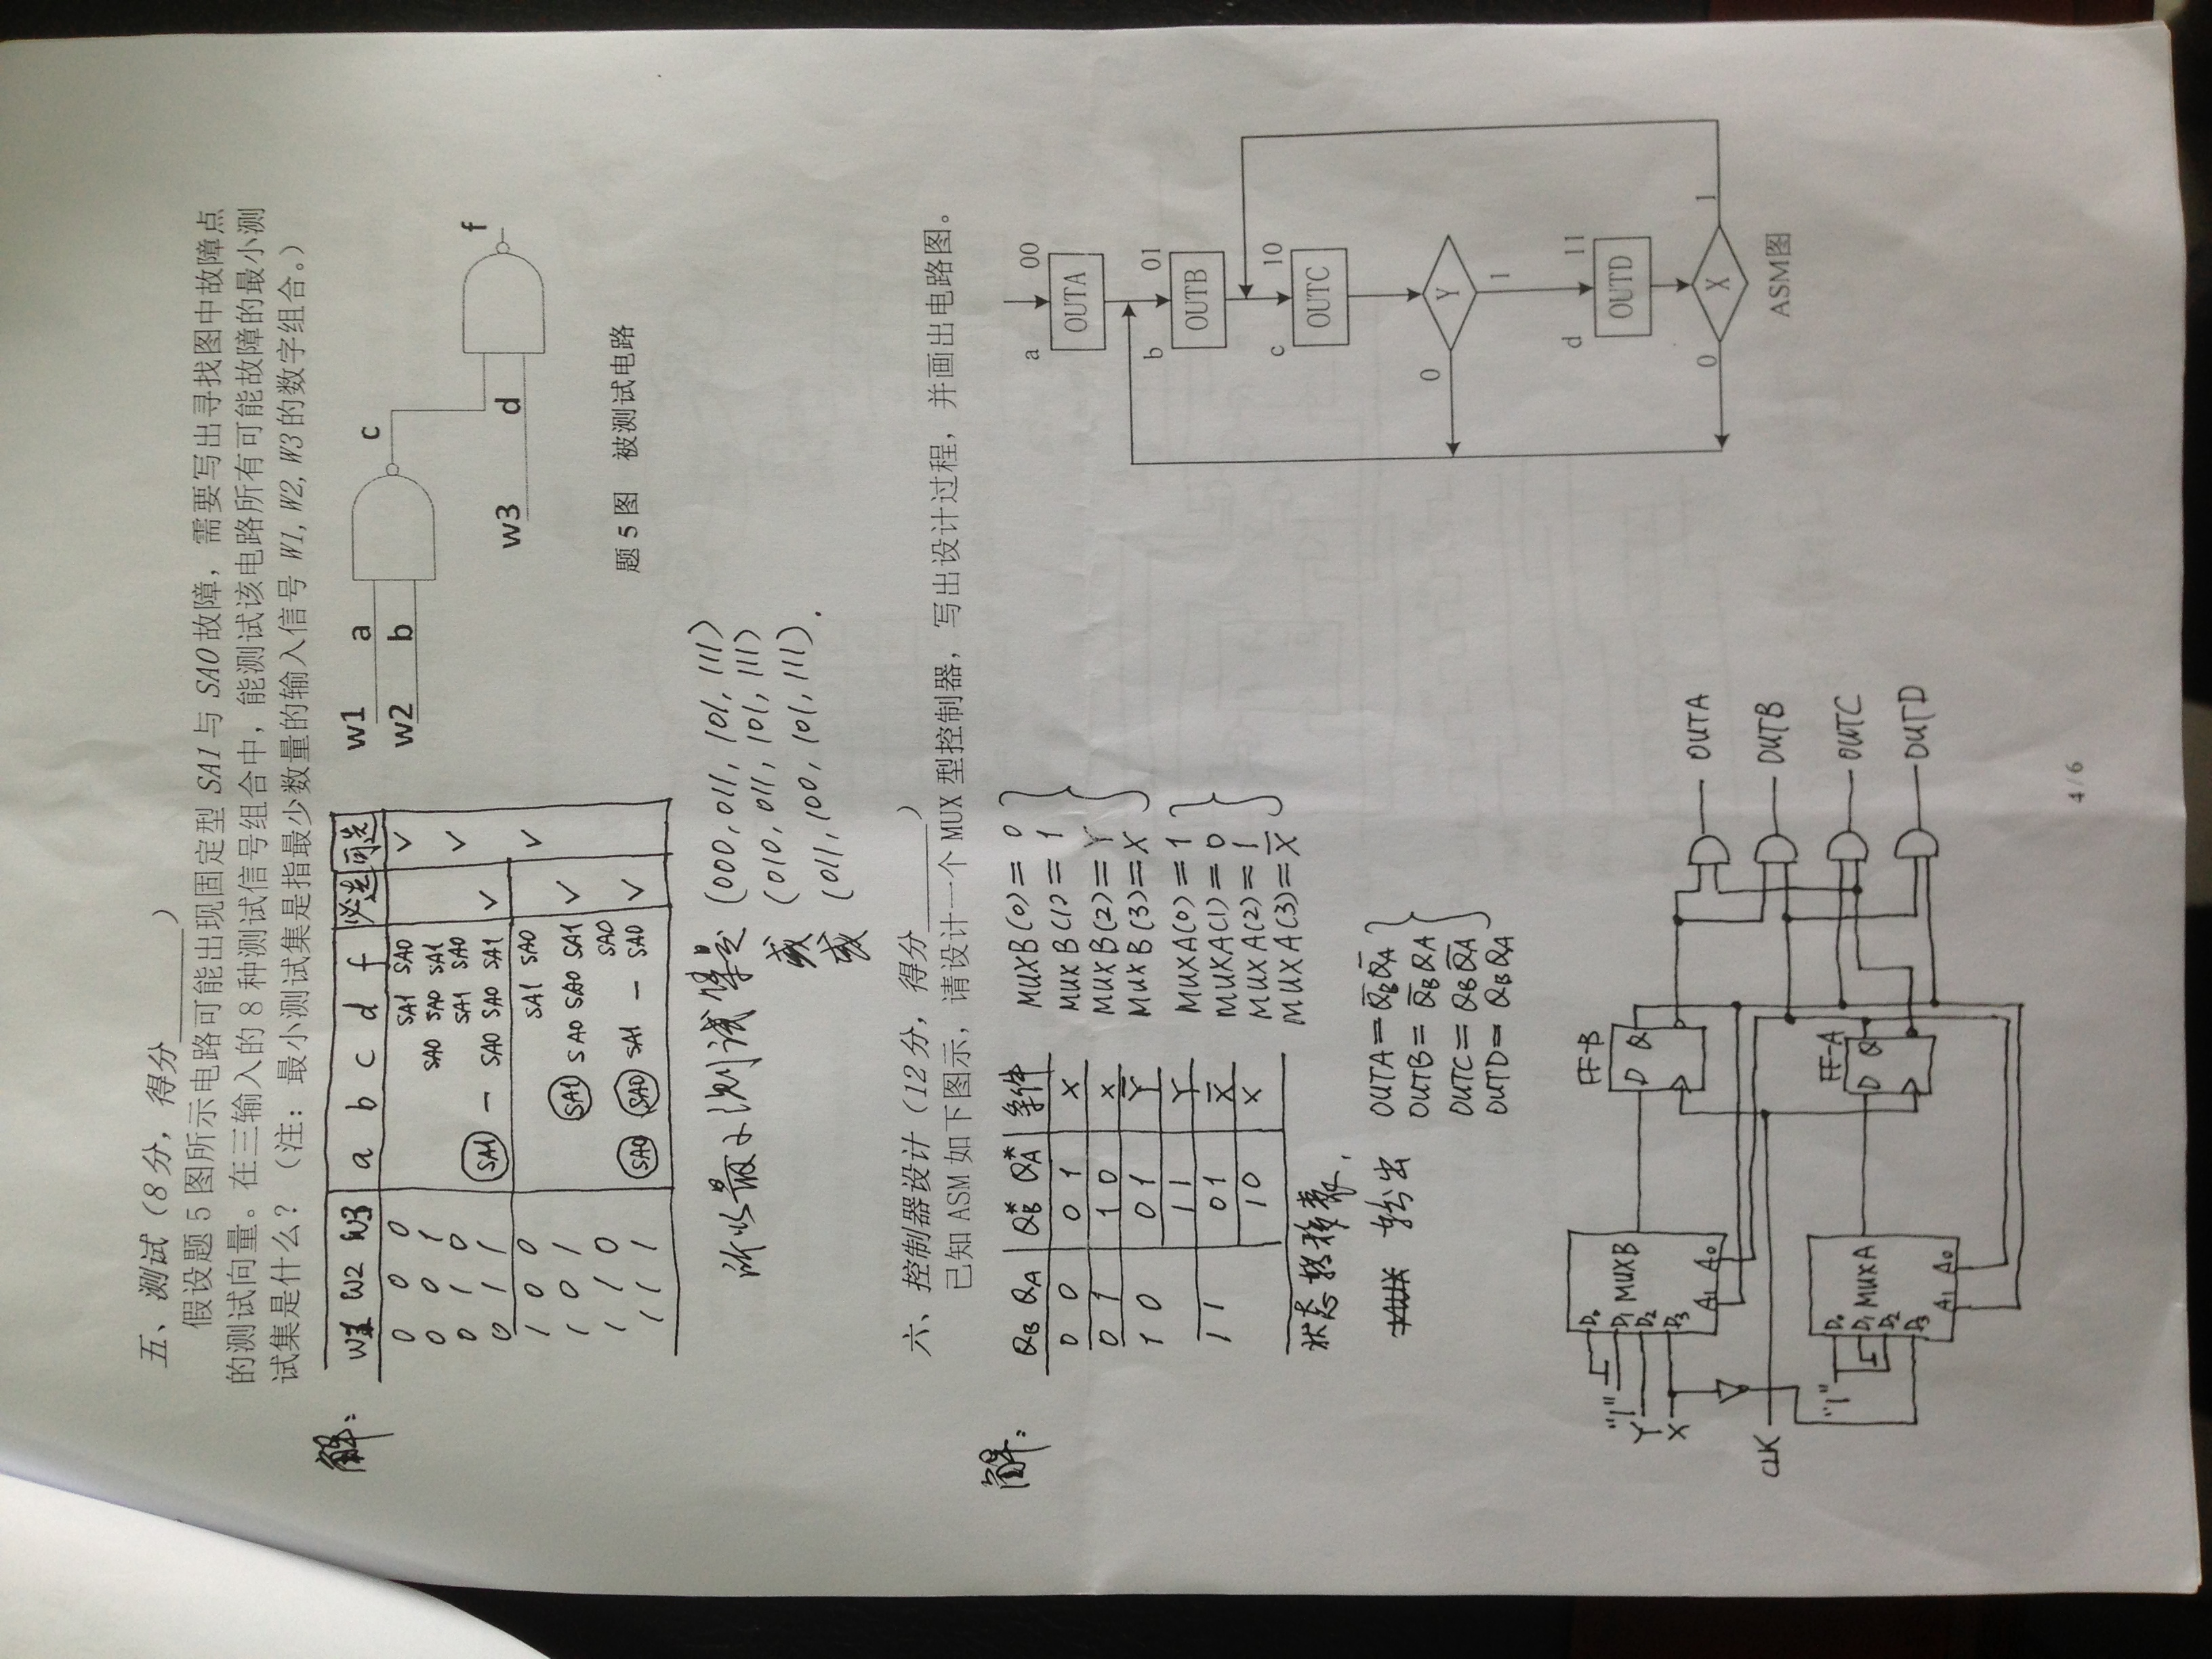 五、测试（8分，得分______）
假设题5图所示电路可能出现固定型SA1与SA0故障，需要写出寻找图中故障点
的测试向量。在三输入的8种测试信号组合中，能测试该电路所有可能故障的最小测
试集是什么？（注：最小测试集是指最少数量的输入信号W1,W2,W3的数字组合。）
解：
W1 W2 W3 a b c d f 必选 可选
0 0 0 SA1 SA0 ✓
0 0 1 SA0 SA0 SA1
0 1 0 SA1 SA0 ✓
0 1 1 SA1 – SA0 SA0 SA1 ✓
1 0 0 SA1 SA0 ✓
1 0 1 SA1 SA0 SA0 SA1 ✓
1 1 0 SA0
1 1 1 SA0 SA0 SA1 – SA0 ✓
w1 a
w2 b
c
w3 d
f
题5图 被测试电路
所以最小测试集是 (000,011,101,111)
或 (010,011,101,111)
或 (011,100,101,111).
六、控制器设计（12分，得分______）
已知ASM如下图示，请设计一个MUX型控制器，写出设计过程，并画出电路图。
解：
QB QA QB* QA* 条件
0 0 0 1 X
0 1 1 0 X
1 0 0 1 Y̅
1 1 Y
1 1 0 1 X̅
1 0 X
状态转移表.
MUXB(0)= 0
MUXB(1)= 1
MUXB(2)= Y
MUXB(3)= X
MUXA(0)= 1
MUXA(1)= 0
MUXA(2)= 1
MUXA(3)= X̅
MUX 输出
OUTA= Q̅B Q̅A
OUTB= Q̅B QA
OUTC= QB Q̅A
OUTD= QB QA
a 00
OUTA
b 01
OUTB
c 10
OUTC
0 Y
1
d 11
OUTD
0 X 1
ASM图
"1"
Y
X
D0
D1
D2
D3
MUXB
A1 A0
FF-B
D Q
CLK
"1"
D0
D1
D2
D3
MUXA
A1 A0
FF-A
D Q
OUTA
OUTB
OUTC
OUTD
4/6